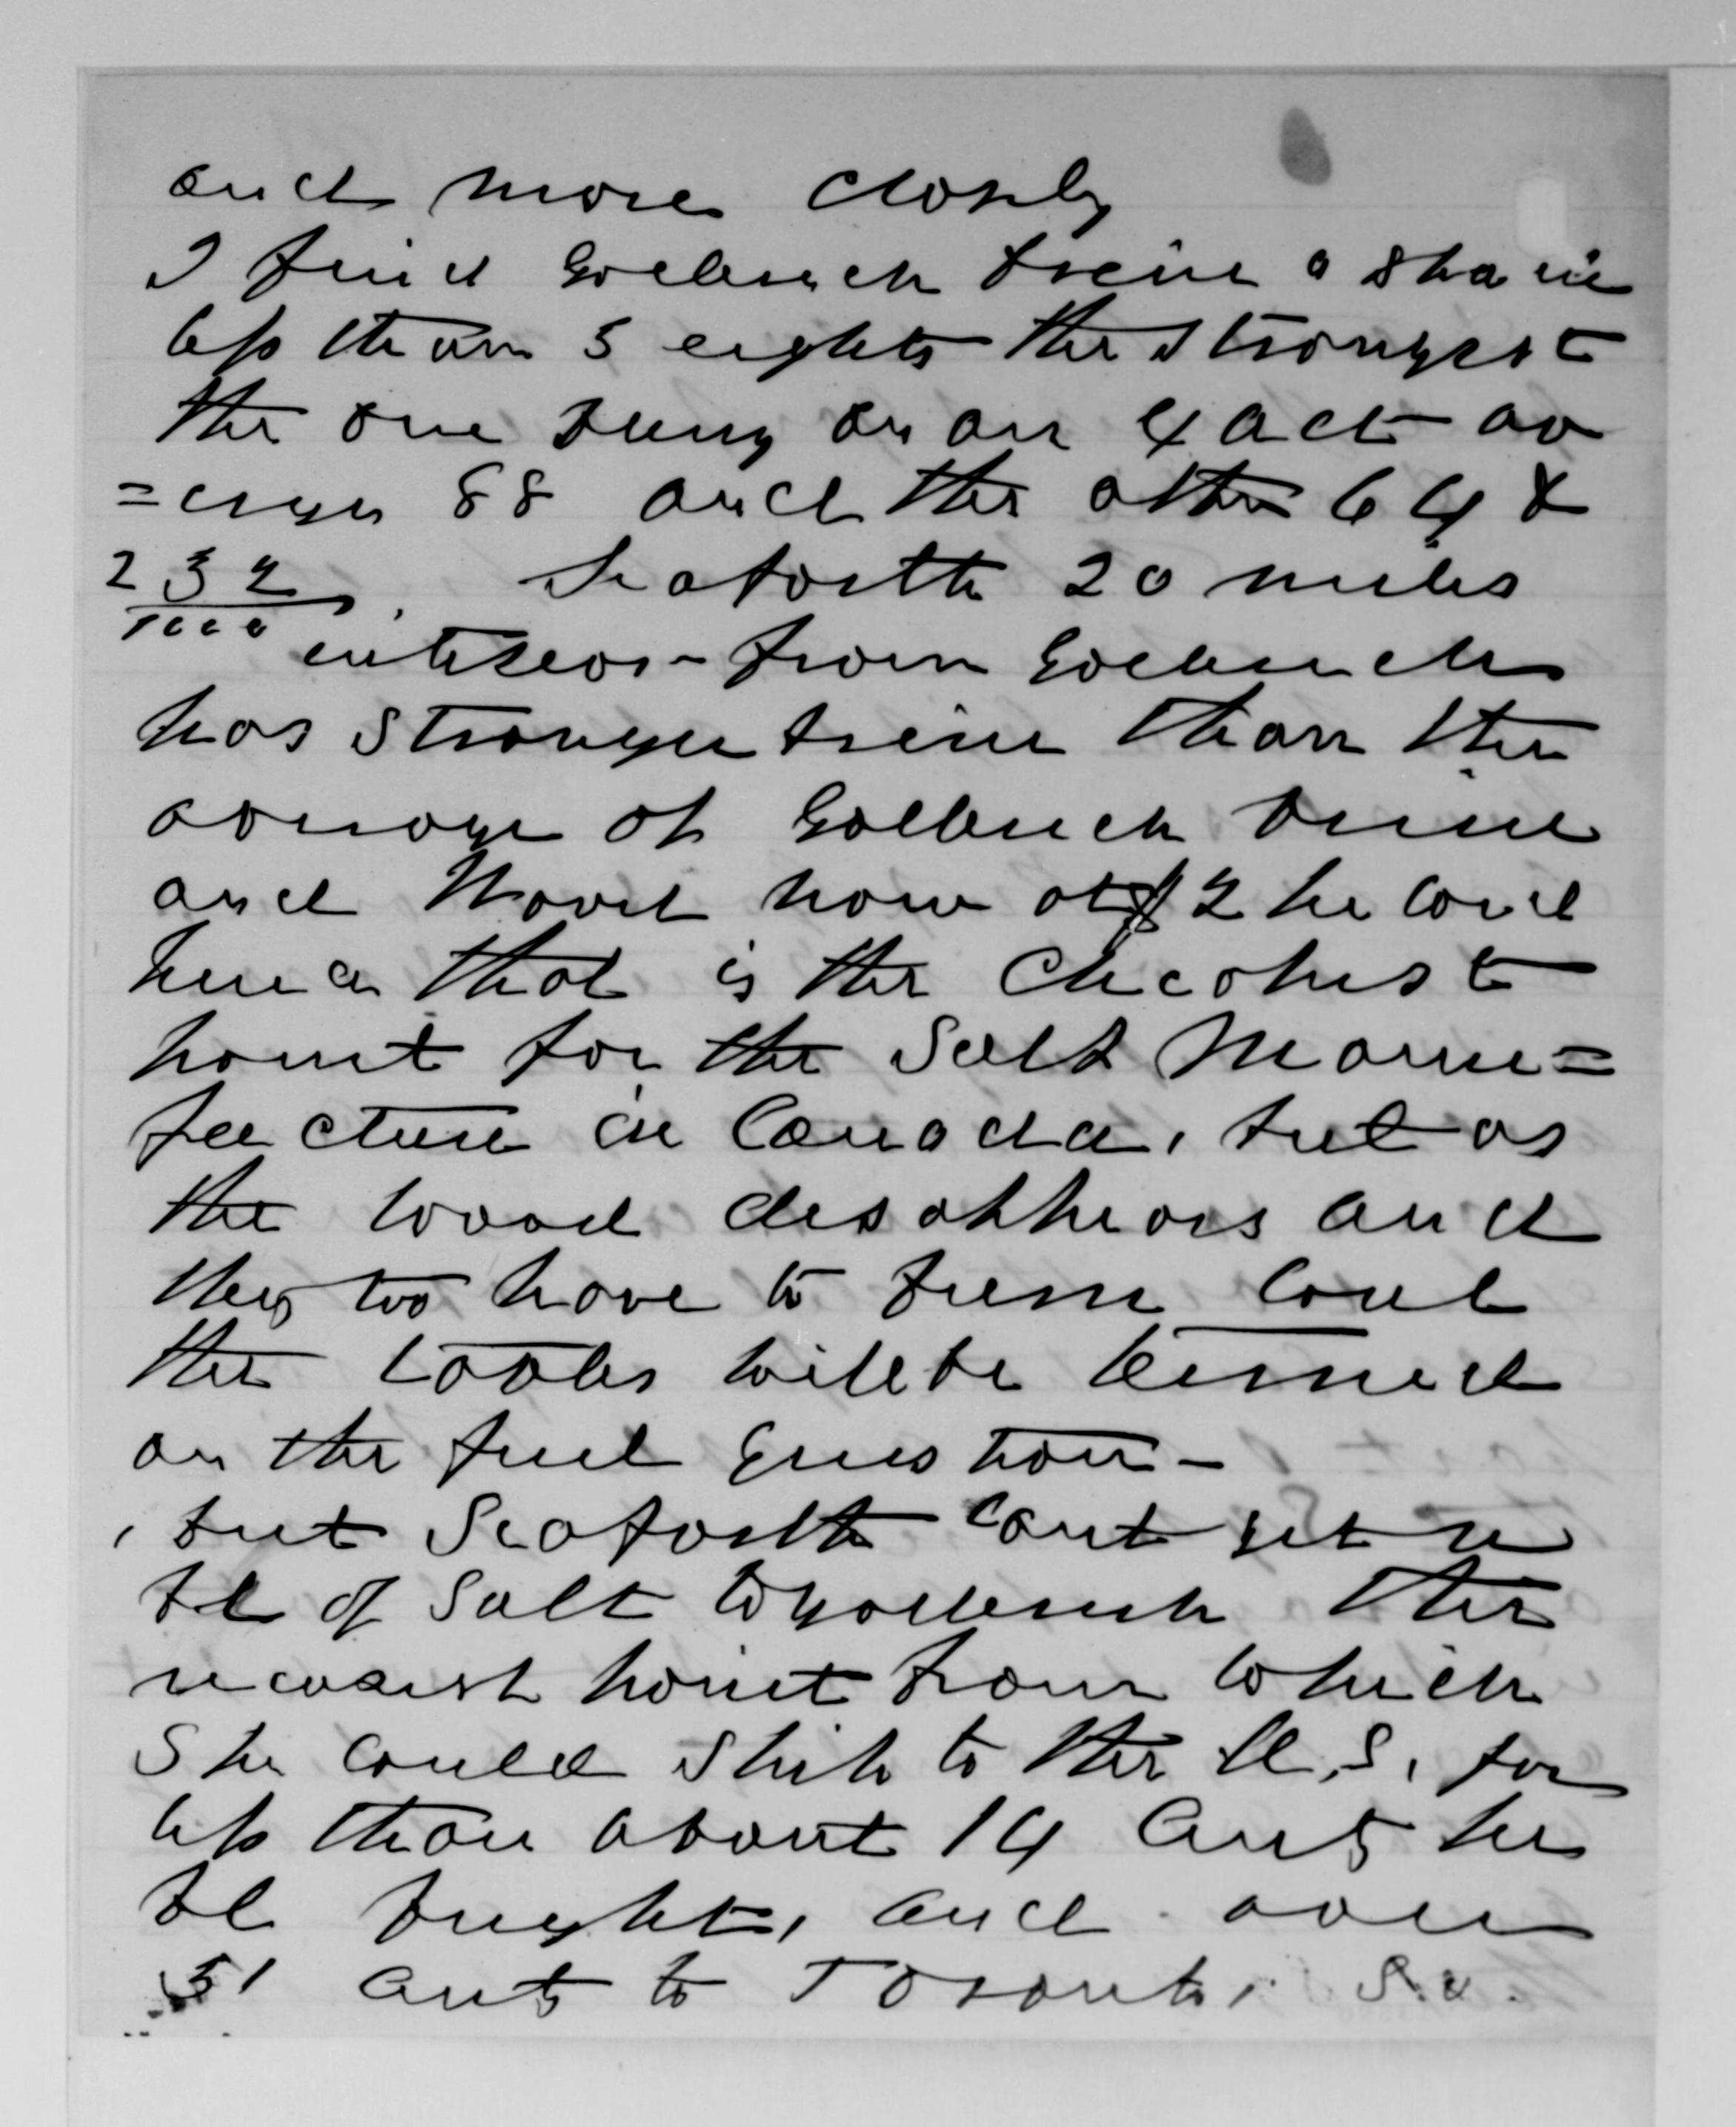 and more closely
I find Goderich brine a shade
less than 3 eights the strongest
the one being on an exact av
=erage 88 and the other 64 &
232/1000. Seaforth 20 miles
interior from Goderich
has stronger brine than the
average of Goderich brine
and Wood now at $2 per Cord
hence that is the cheapest
point for the Salt Manu=
facture in Canada, but as
the wood disappears and
they too have to burn Coal
the tables will be turned
on the fuel question -
, but Seaforth cant get a
bl of Salt to Goderich the
nearest point from which
She could ship to the U.S. for
less than about 14 cents per
bl freight, and over
31 cents to Toronto, So.